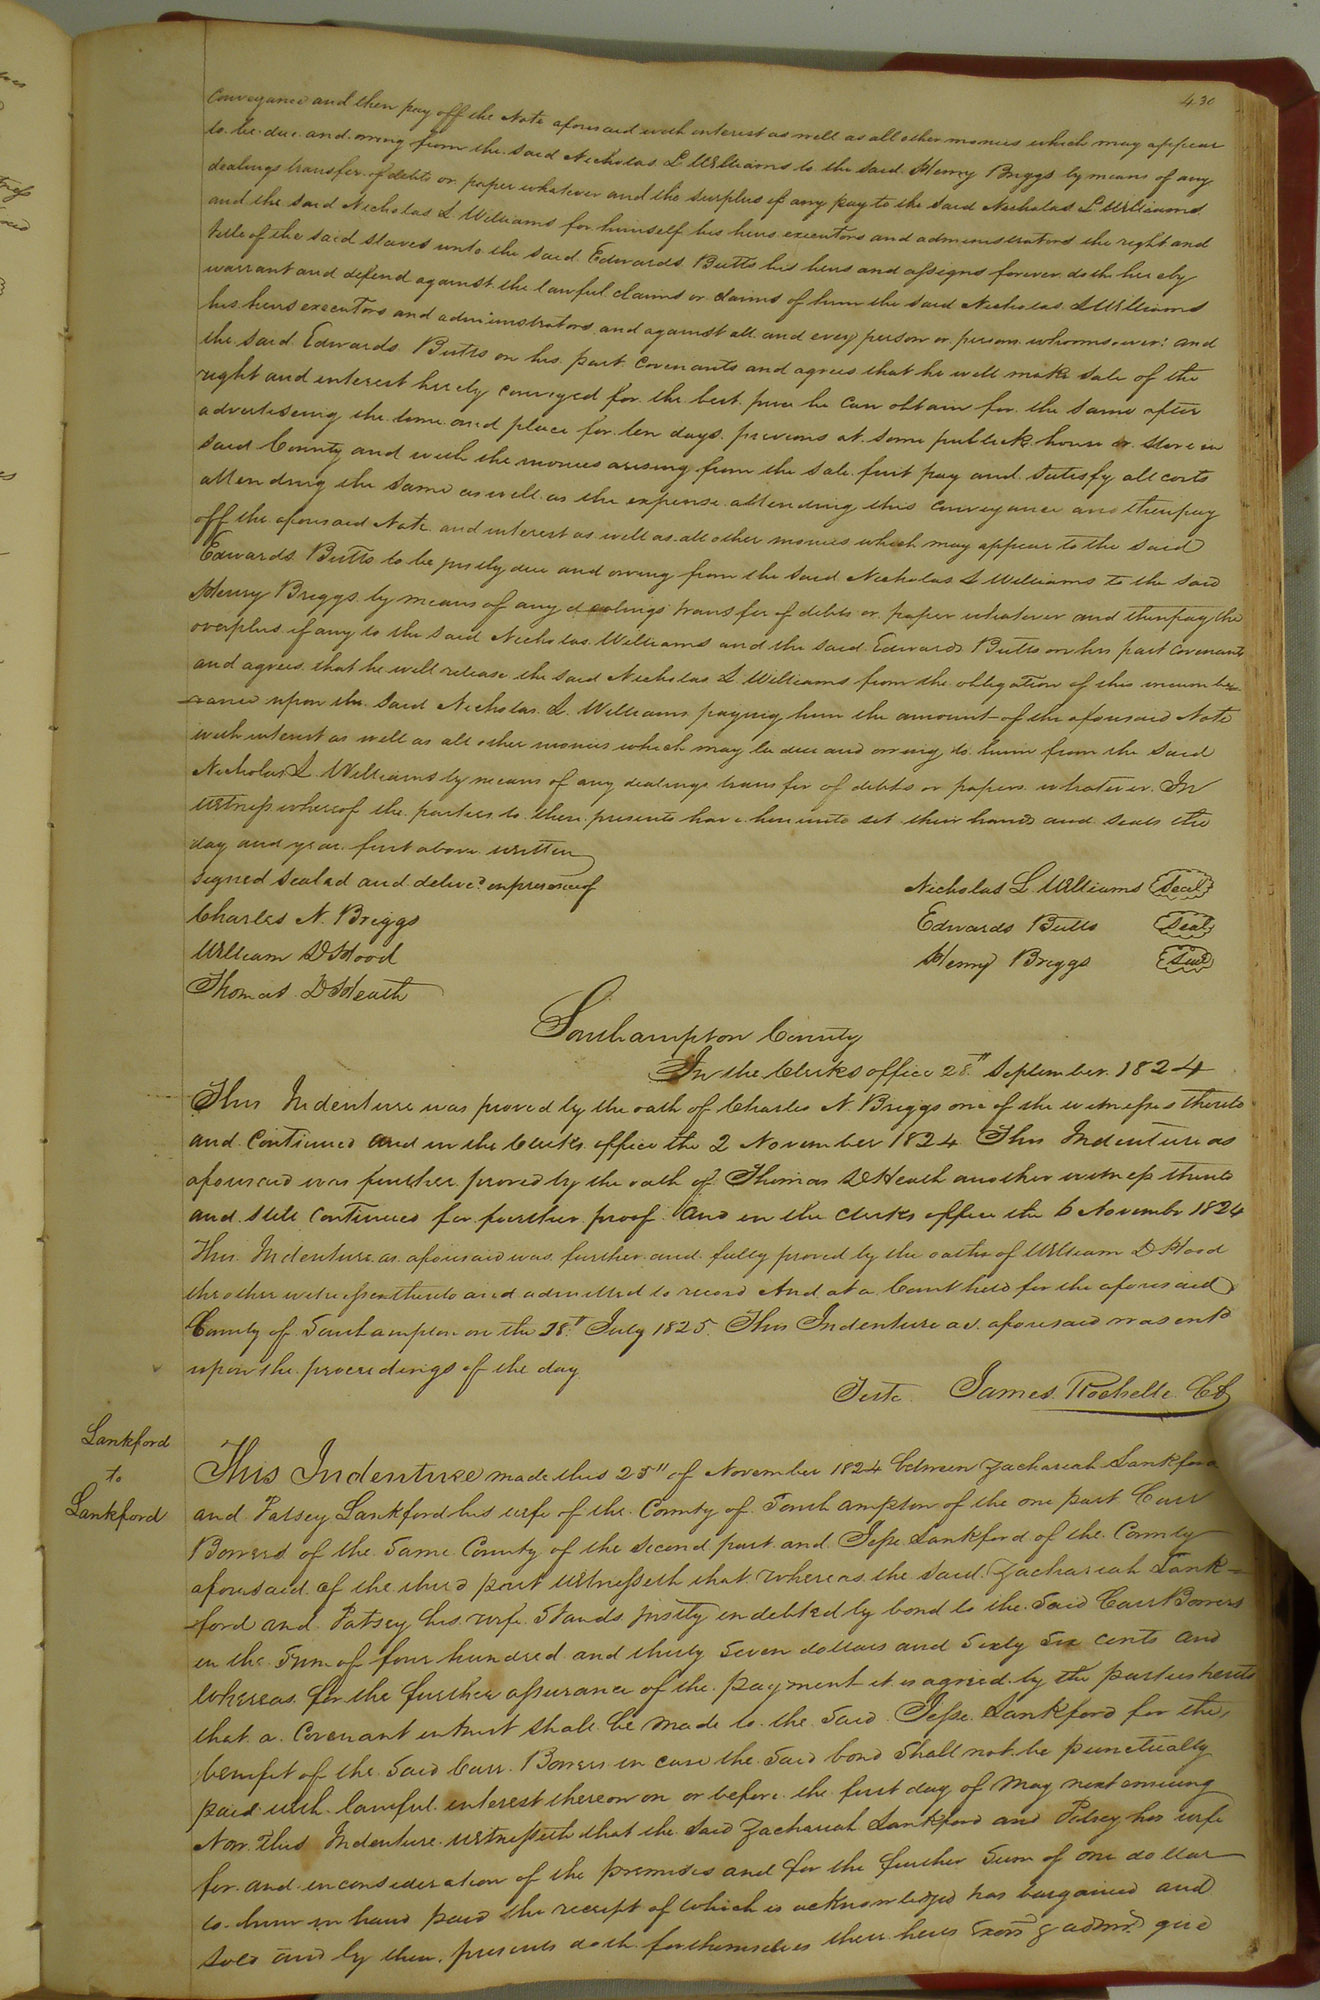 430
Conveyance and then pay off the Note aforesaid with interest as well as all other monies which may appear
to be due and owing from the said Nicholas L Williams to the said Henry Briggs by means of any
dealings transfer of debts or paper whatever and the surplus if any pay to the said Nicholas L Williams
and the said Nicholas L Williams for himself his heirs executors and administrators the right and
title of the said slaves unto the said Edwards Butts his heirs and assigns forever doth hereby
warrant and defend against the lawful claims or claims of him the said Nicholas L Williams
his heirs executors and administrators and against all and every person or persons whomsoever: and
the said Edwards Butts on his part Covenants and agrees that he will make sale of the
right and interest hereby conveyed for the best price he can obtain for the same after
advertiseing the time and place for ten days previous at some publick house or store in
said County and with the monies arising from the sale first pay and satisfy all costs
attending the same as well as the expense attending this conveyance and then pay
off the aforesaid Note and interest as well as all other monies which may appear to the said
Edwards Butts to be justly due and owing from the said Nicholas L Williams to the said
Henry Briggs by means of any dealings transfer of debts or paper whatever and then pay the
overplus if any to the said Nicholas Williams and the said Edwards Butts on his part Covenants
and agrees that he will release the said Nicholas L Williams from the obligation of this incumbe-
-rance upon the said Nicholas L. Williams paying him the amount of the aforesaid Note
with interest as well as all other monies which may be due and owing to him from the said
Nicholas L Williams by means of any dealings transfer of debts or papers whatever In
Witness whereof the parties to these presents have hereunto set their hands and seals the
day and year first above written
signed sealed and delivd. in presence of Nicholas L Williams Seal
Charles N. Briggs Edwards Butts Seal
William D Hood Henry Briggs Seal
Thomas D Heath
Southampton County
In the Clerks office 28th September 1824
This Indenture was proved by the oath of Charles N. Briggs one of the witnesses thereto
and Continued and in the Clerks office the 2 November 1824 This Indenture as
aforesaid was further proved by the oath of Thomas D Heath another witness thereto
and still Continued for further proof. And in the Clerks office the 6 November 1824
This Indenture as aforesaid was further and fully proved by the oaths of William D Hood
the other witnesses thereto and admitted to record And at a Court held for the aforesaid
County of Southampton on the 18t. July 1825. This Indenture as aforesaid was entd
upon the proceedings of the day
Teste James Rochelle CC
Lankford
to
Lankford
This Indenture made this 25th of November 1824 Between Zachariah Lankford
and Patsey Lankford his wife of the County of Southampton of the one part Carr
Bowers of the Same County of the second part and Jesse Lankford of the County
aforesaid of the third part Witnesseth that whereas the said Zachariah Lank-
-ford and Patsey his wife Stands justly indebted by bond to the Said Carr Bowers
in the Sum of four hundred and thirty Seven dollars and Sixty Six cents and
Whereas for the further assurance of the payment it is agreed by the parties hereto
that a Covenant in trust shall be made to the Said Jesse Lankford for the
benefit of the Said Carr Bowers in case the Said bond Shall not be punctually
paid with lawful interest thereon on or before the first day of May next ensuing
Now This Indenture witnesseth that the Said Zachariah Lankford and Patsey his wife
for and in consideration of the premises and for the further Sum of one dollar
to him in hand paid the receipt of which is acknowledged has bargained and
sold and by these presents doth for themselves their heirs Exors & admrs. give